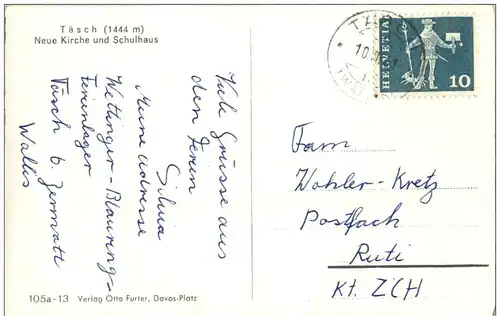 Täsch (1444 m)
Neue Kirche und Schulhaus
Viele Grüsse aus
den Ferien
Silvia
Meine Adresse
Wettinger-Blauring-
Ferienlager
Täsch b. Zermatt
Wallis
105a-13 Verlag Otto Furter, Davos-Platz
HELVETIA
10
Fam.
Wohler-Kretz
Postfach
Ruti
Kt. ZCH